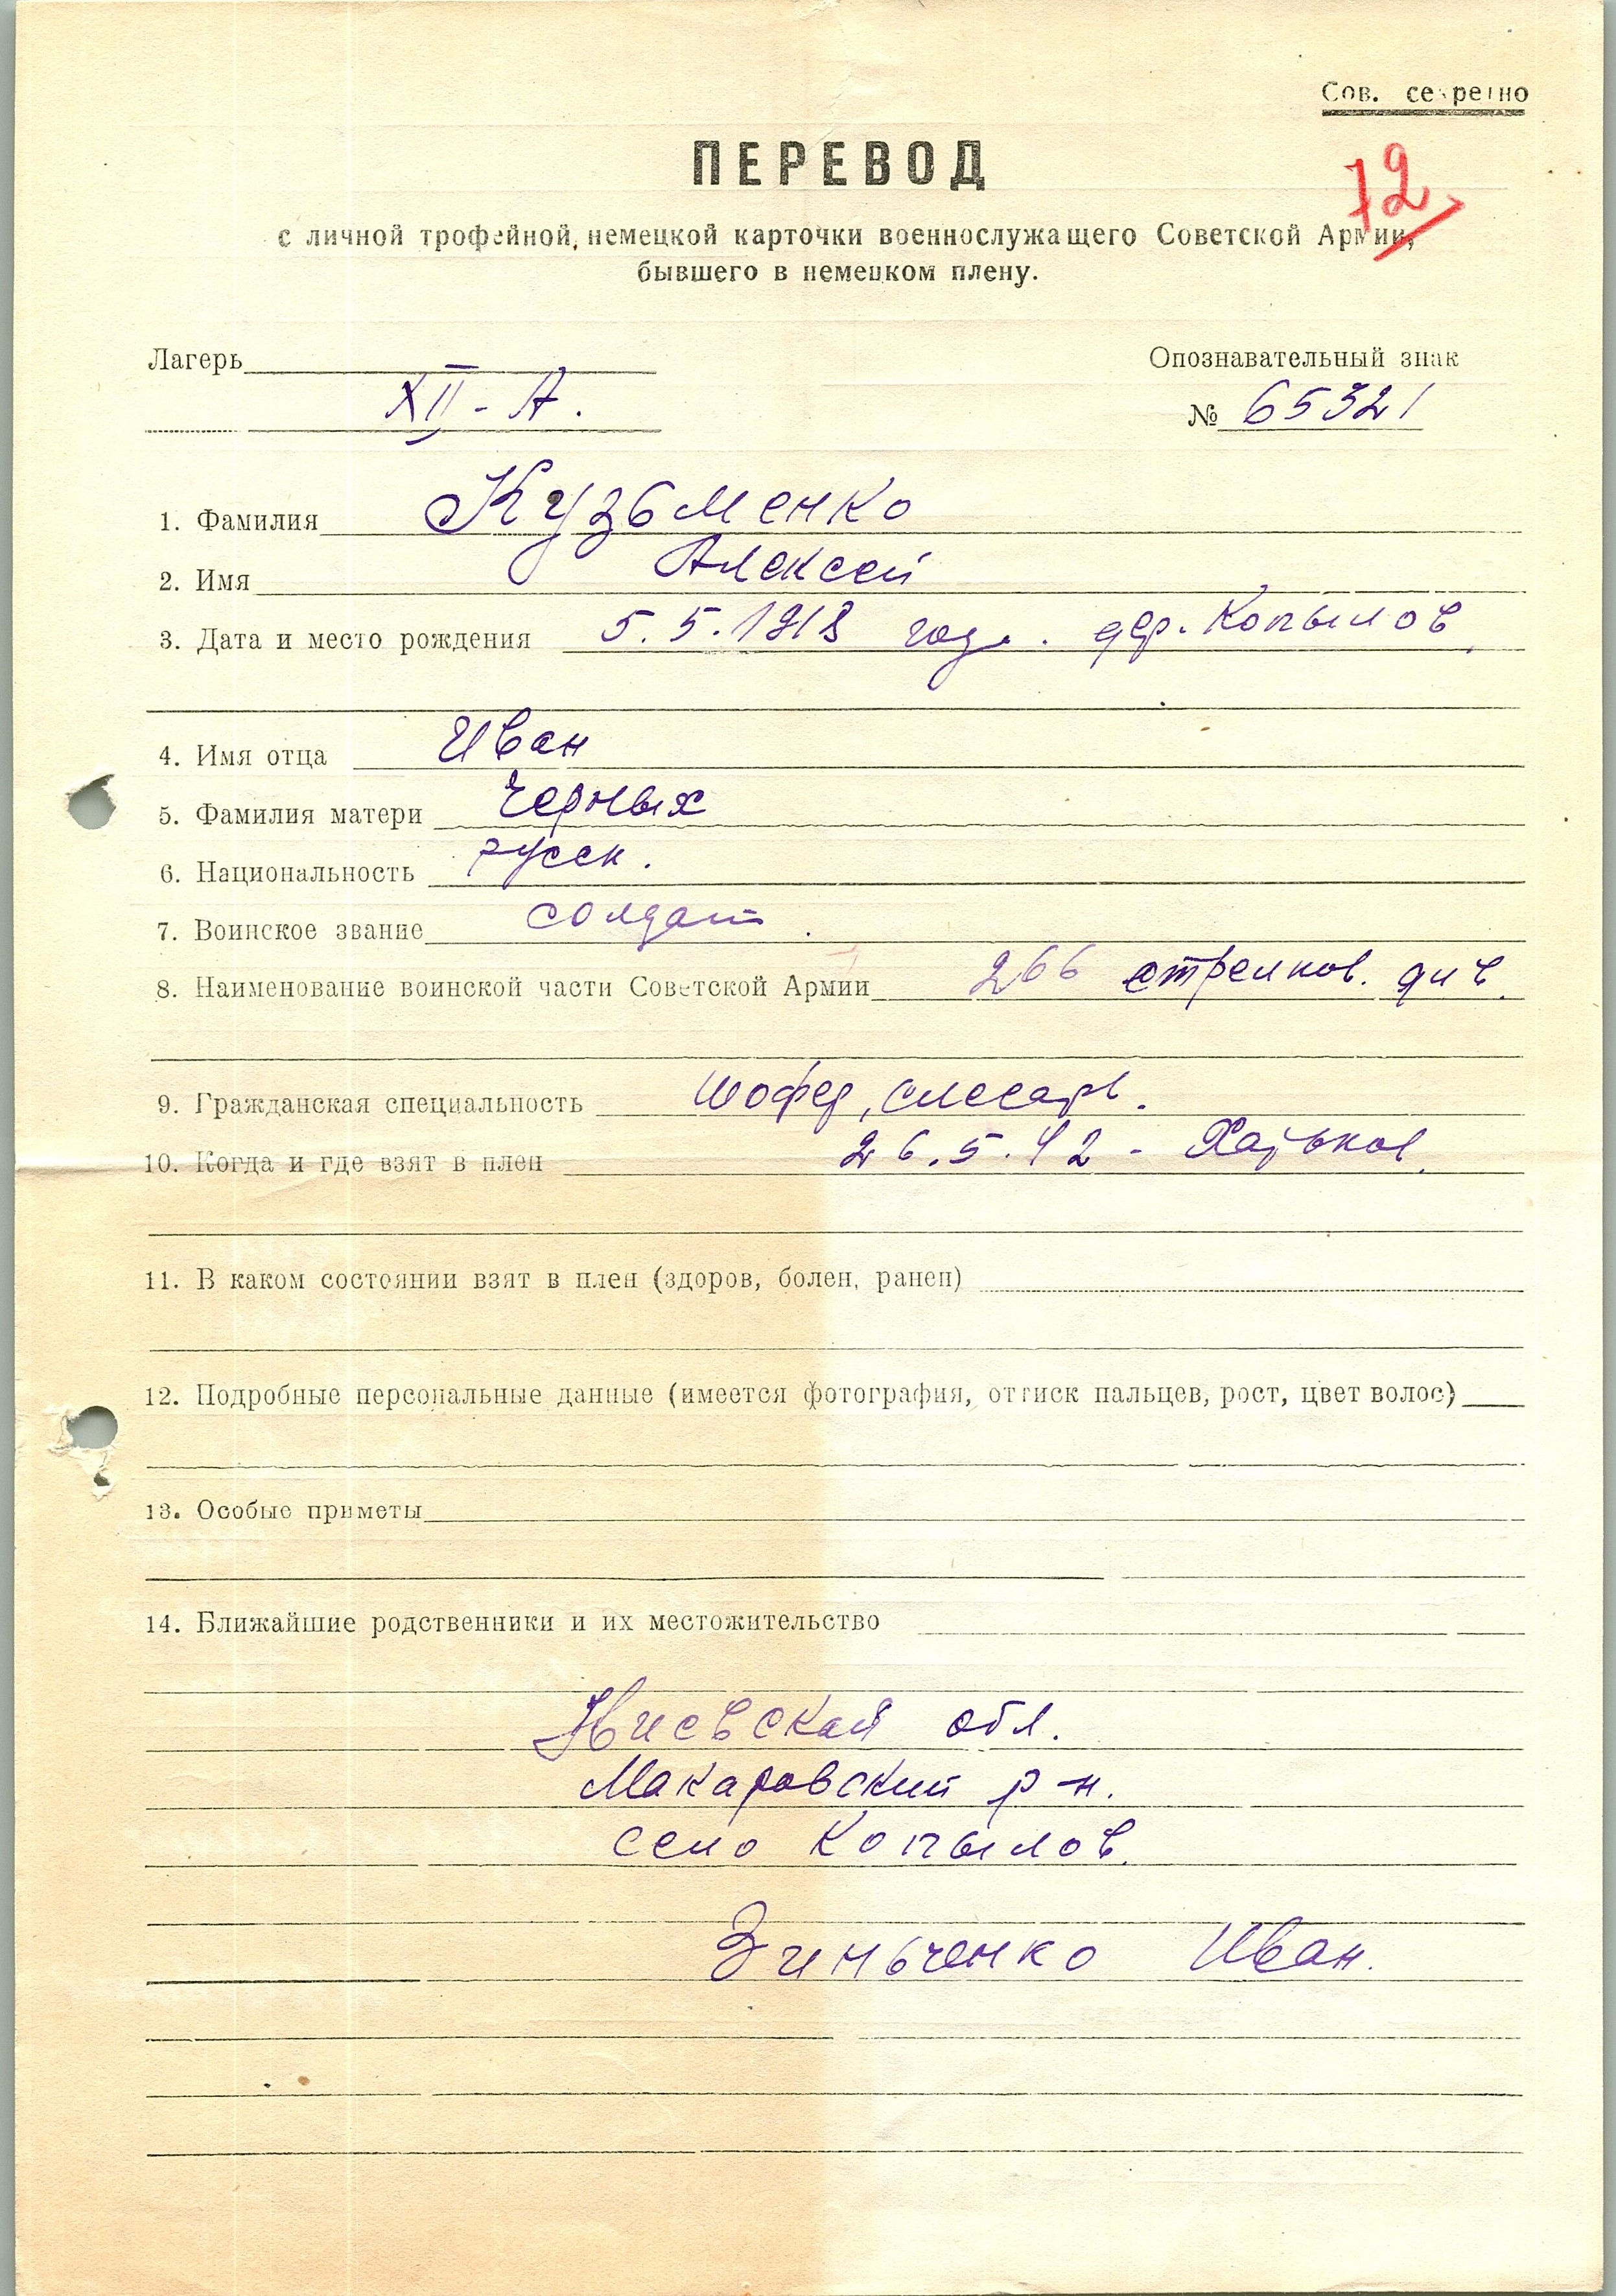 Сов. секретно
ПЕРЕВОД
72
с личной трофейной, немецкой карточки военнослужащего Советской Армии,
бывшего в немецком плену.
Лагерь Опознавательный знак
XII - А. № 65321
1. Фамилия Кузьменко
2. Имя Алексей
3. Дата и место рождения 5.5.1918 года. дер. Копылов,
4. Имя отца Иван
5. Фамилия матери Черных
6. Национальность русск.
7. Воинское звание солдат.
8. Наименование воинской части Советской Армии 266 стрелков. див.
9. Гражданская специальность шофер, слесарь.
10. Когда и где взят в плен 26.5.42 - Харьков.
11. В каком состоянии взят в плен (здоров, болен, ранен)
12. Подробные персональные данные (имеется фотография, оттиск пальцев, рост, цвет волос)
13. Особые приметы
14. Ближайшие родственники и их местожительство
Киевская обл.
Макаровский р-н.
село Копылов.
Зиньченко Иван.